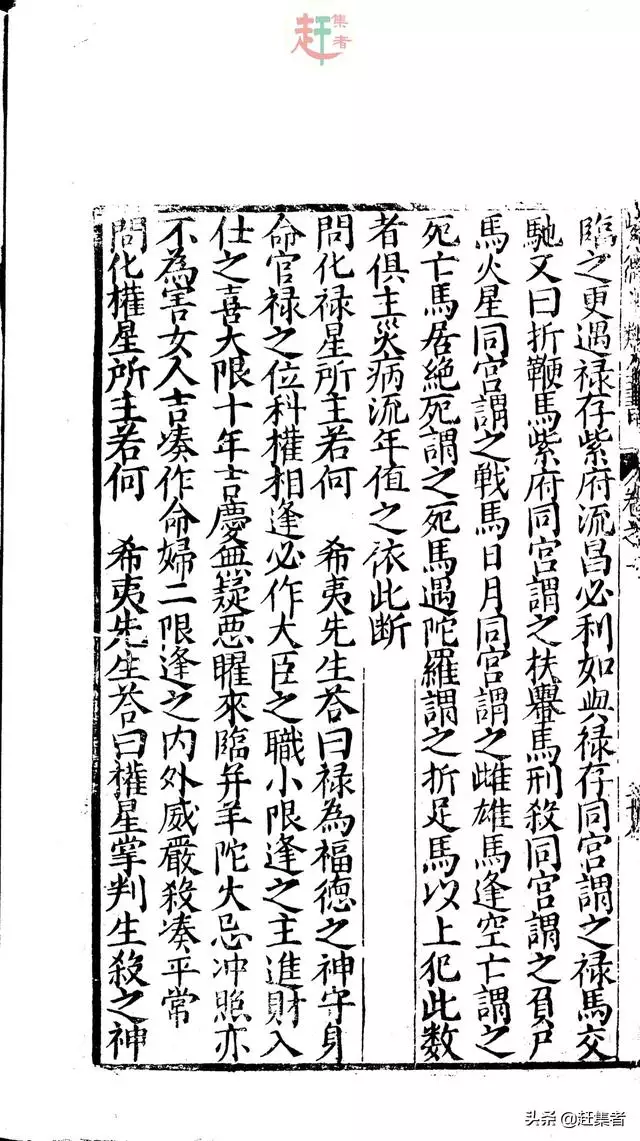 赶集者
臨之更遇禄存紫府流昌必利如與禄存同宮謂之禄馬交
馳又曰折鞭馬紫府同宮謂之扶轝馬刑殺同宮謂之負尸
馬火星同宮謂之戰馬日月同宮謂之雌雄馬逢空亡謂之
死亡馬居絶死謂之死馬遇陀羅謂之折足馬以上犯此數
者俱主災病流年值之依此断
問化禄星所主若何　希夷先生荅曰禄為福德之神守身
命官禄之位科權相逢必作大臣之職小限逢之主進財入
仕之喜大限十年吉慶無疑惡曜來臨并羊陀火忌冲照亦
不為害女人吉凑作命婦二限逢之内外威嚴殺凑平常
問化權星所主若何　希夷先生荅曰權星掌判生殺之神
头条@赶集者